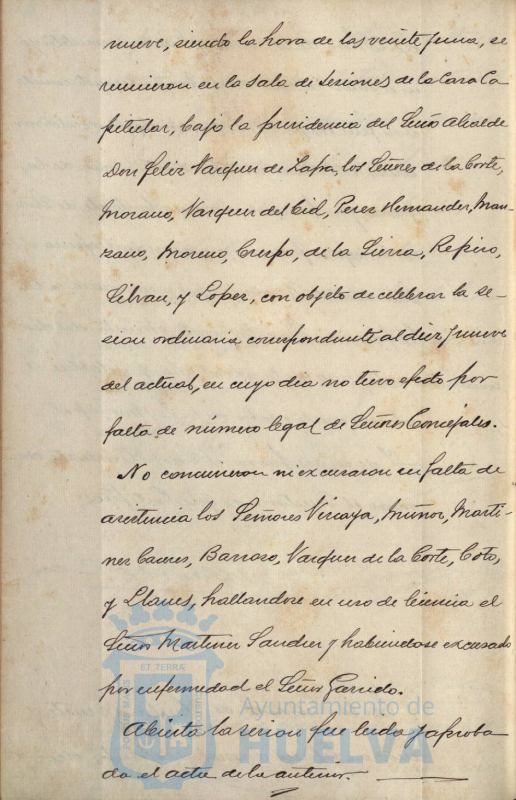 nueve, siendo la hora de las veinte y una, se
reunieron en la sala de sesiones de la Casa Ca
pitular, bajo la presidencia del Señor Alcalde
Don Felix Vazquez de Zafra, los Señores de la Corte,
Morano, Vazquez del Cid, Perez Hernandez, Man-
zano, Moreno, Crespo, de la Sierra, Repiso,
y Lopez, con objeto de celebrar la se-
sion ordinaria correspondiente al diez y nueve
del actual, en cuyo dia no tuvo efecto por
falta de número legal de Señores Concejales.
No concurrieron ni excusaron su falta de
asistencia los Señores Vizcaya, Muñoz, Marti-
nez Caceres, Barroso, Vazquez de la Corte, Coto,
y Llanes, hallandose en uso de licencia el
Señor Martinez Sanchez y habiendose excusado
por enfermedad el Señor Garrido.
Abierta la sesion fue leida y aproba
da el acta de la anterior.
ET TERRA
Ayuntamiento de
HUELVA